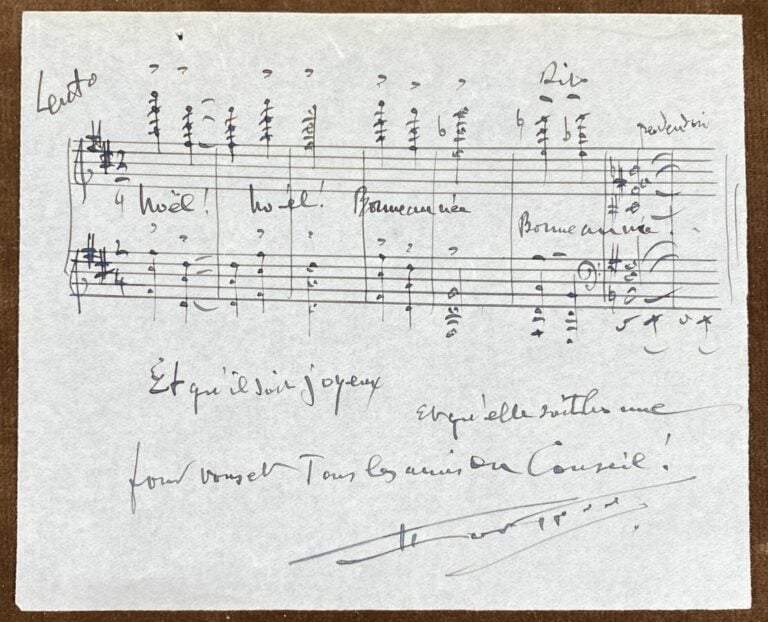 Lento
Rit.
perdendosi
2
4
Noël! No-ël! Bonne année
Bonne année
2
4
Et qu'il soit joyeux
Et qu'elle soit bonne
pour vous et Tous les amis du Conseil!